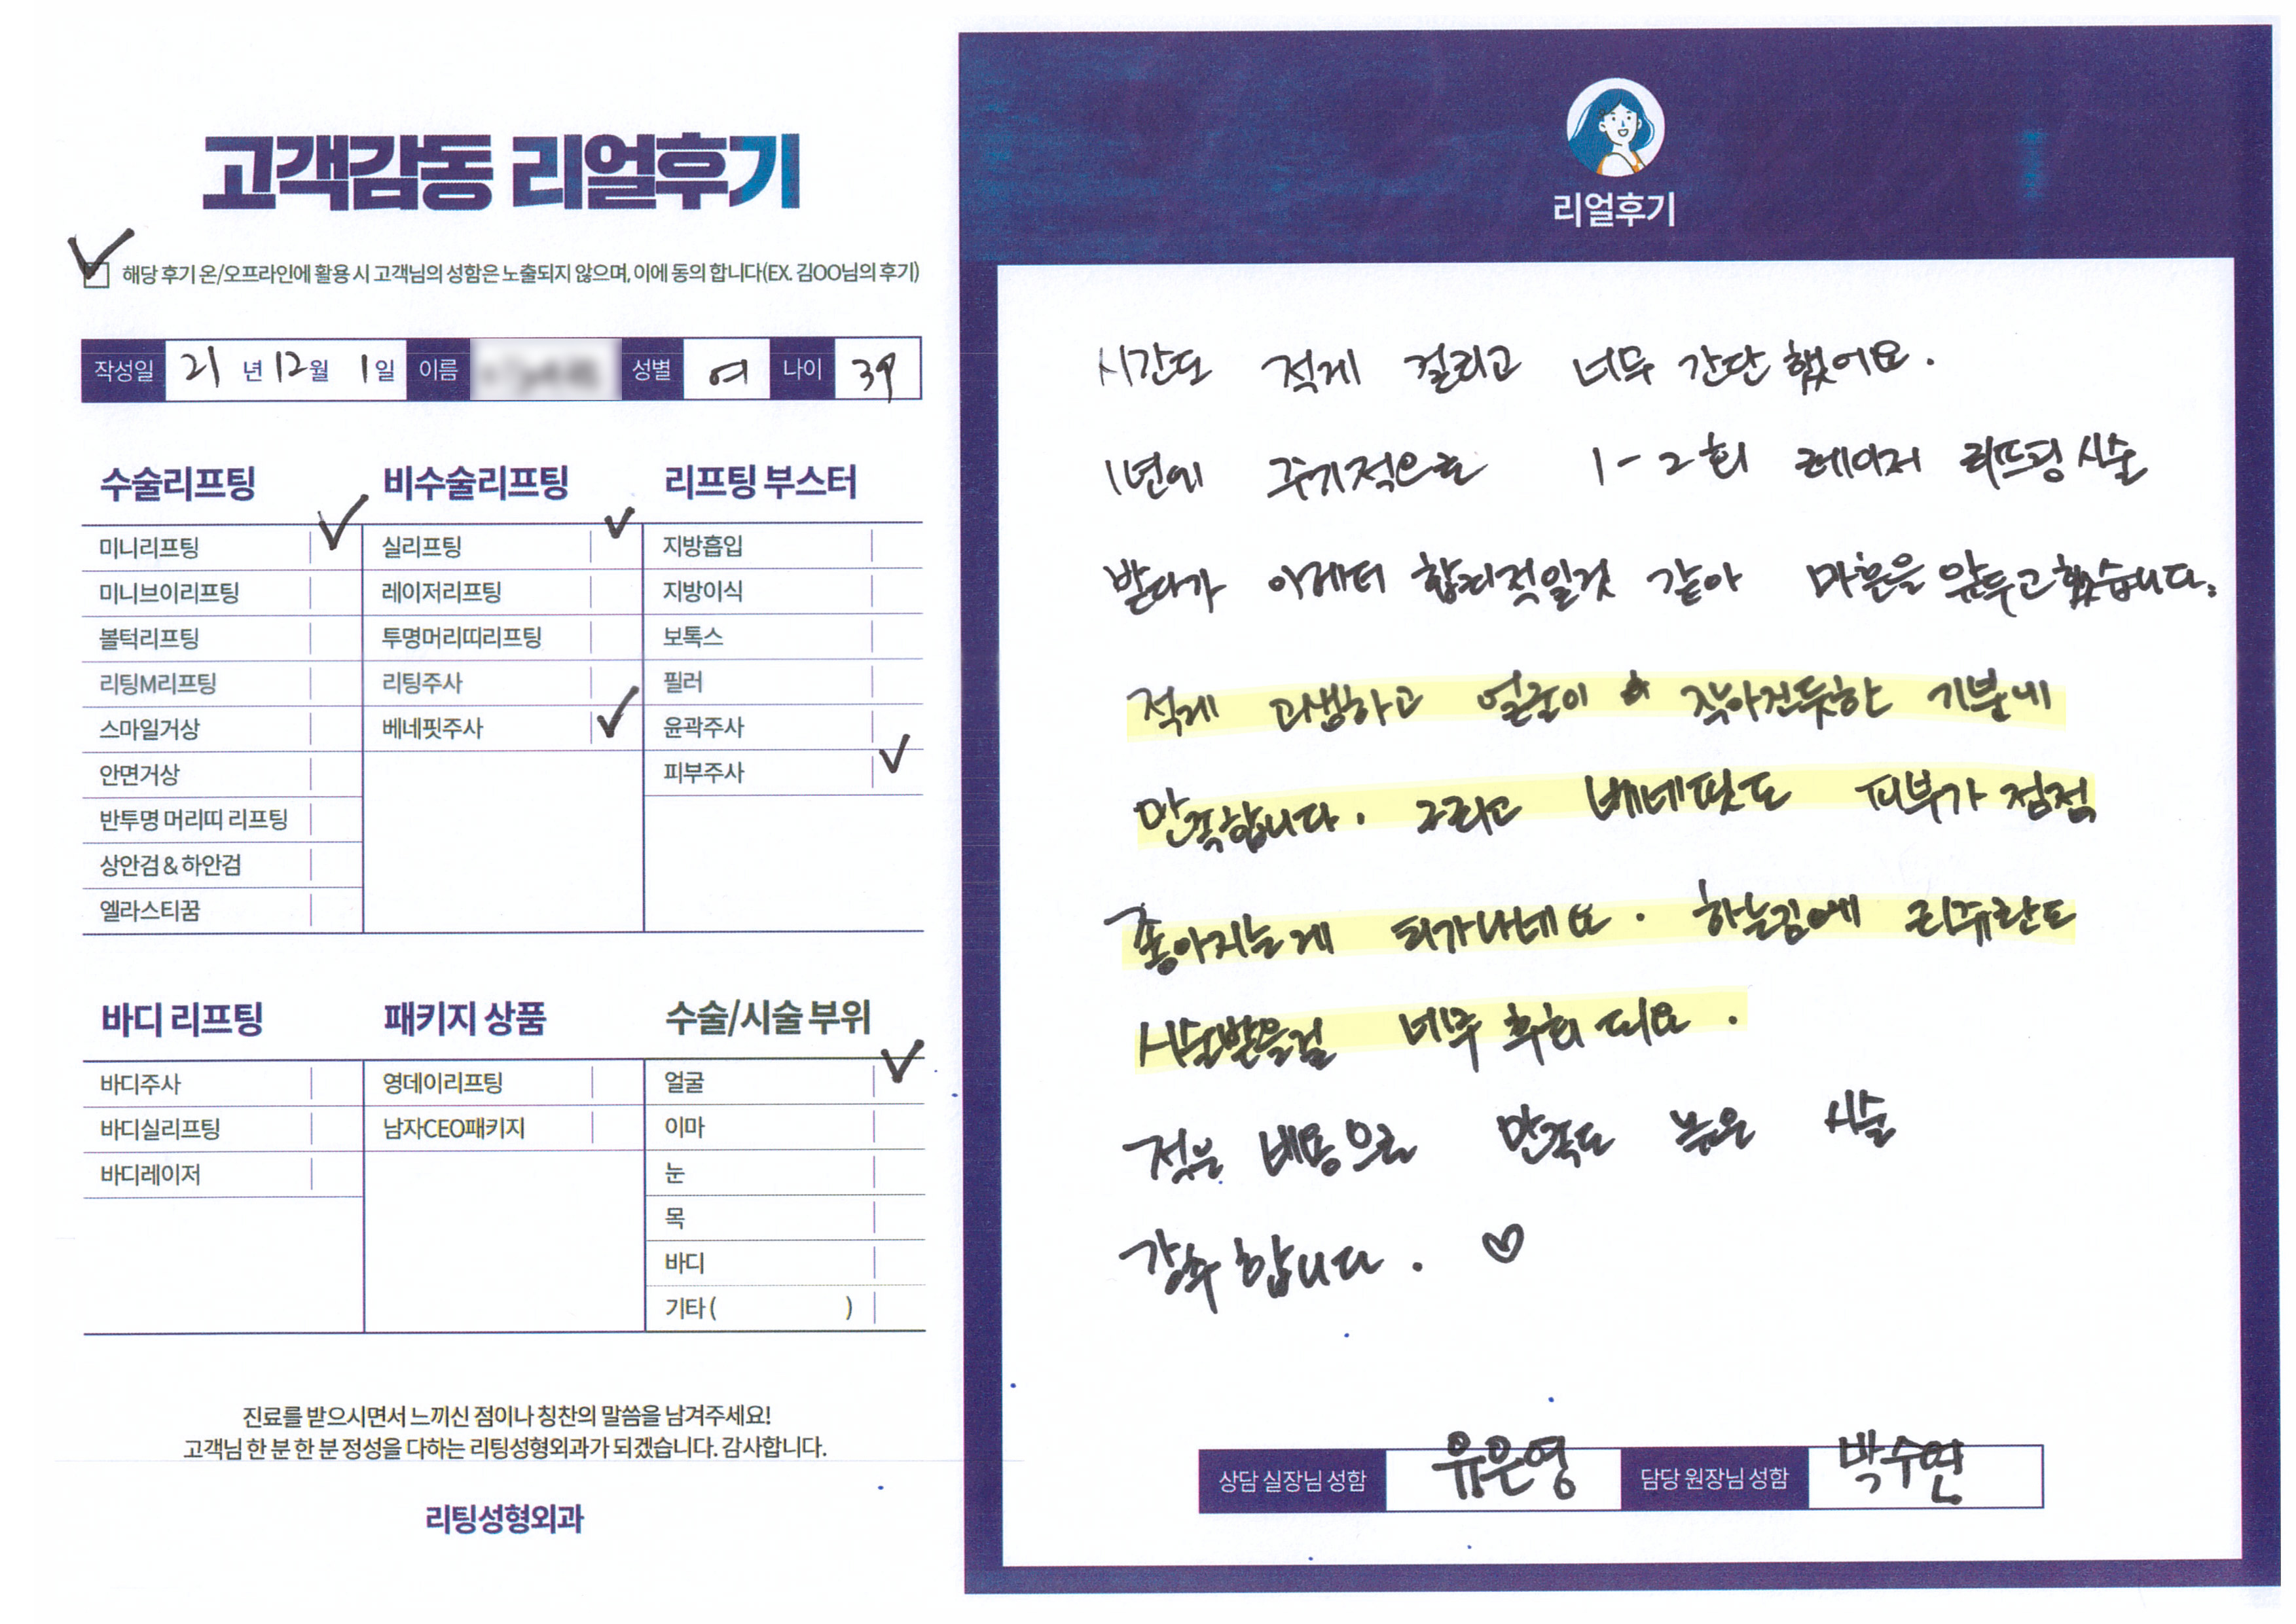 고객감동 리얼후기
해당 후기 온/오프라인에 활용 시 고객님의 성함은 노출되지 않으며, 이에 동의 합니다(EX. 김OO님의 후기)
작성일 21 년 12 월 1 일 이름 성별 여 나이 39
수술리프팅
미니리프팅
미니브이리프팅
볼턱리프팅
리팅M리프팅
스마일거상
안면거상
반투명 머리띠 리프팅
상안검 & 하안검
엘라스티꿈
비수술리프팅
실리프팅
레이저리프팅
투명머리띠리프팅
리팅주사
베네핏주사
리프팅 부스터
지방흡입
지방이식
보톡스
필러
윤곽주사
피부주사
바디 리프팅
바디주사
바디실리프팅
바디레이저
패키지 상품
영데이리프팅
남자CEO패키지
수술/시술 부위
얼굴
이마
눈
목
바디
기타 ( )
진료를 받으시면서 느끼신 점이나 칭찬의 말씀을 남겨주세요!
고객님 한 분 한 분 정성을 다하는 리팅성형외과가 되겠습니다. 감사합니다.
리팅성형외과
리얼후기
시간도 적게 걸리고 너무 간단했어요.
1년에 주기적으로 1-2회 레이저 리프팅 시술
받다가 이게더 합리적일것 같아 마흔을 앞두고 했습니다.
적게 고생하고 얼굴이 작아진듯한 기분에
만족합니다. 그리고 베네핏도 피부가 점점
좋아지는게 티가나네요. 하는김에 리쥬란도
시술받을걸 너무 후회 되요.
적은 비용으로 만족도 높은 시술
강추 합니다. ♡
상담 실장님 성함 유은영 담당 원장님 성함 박수연